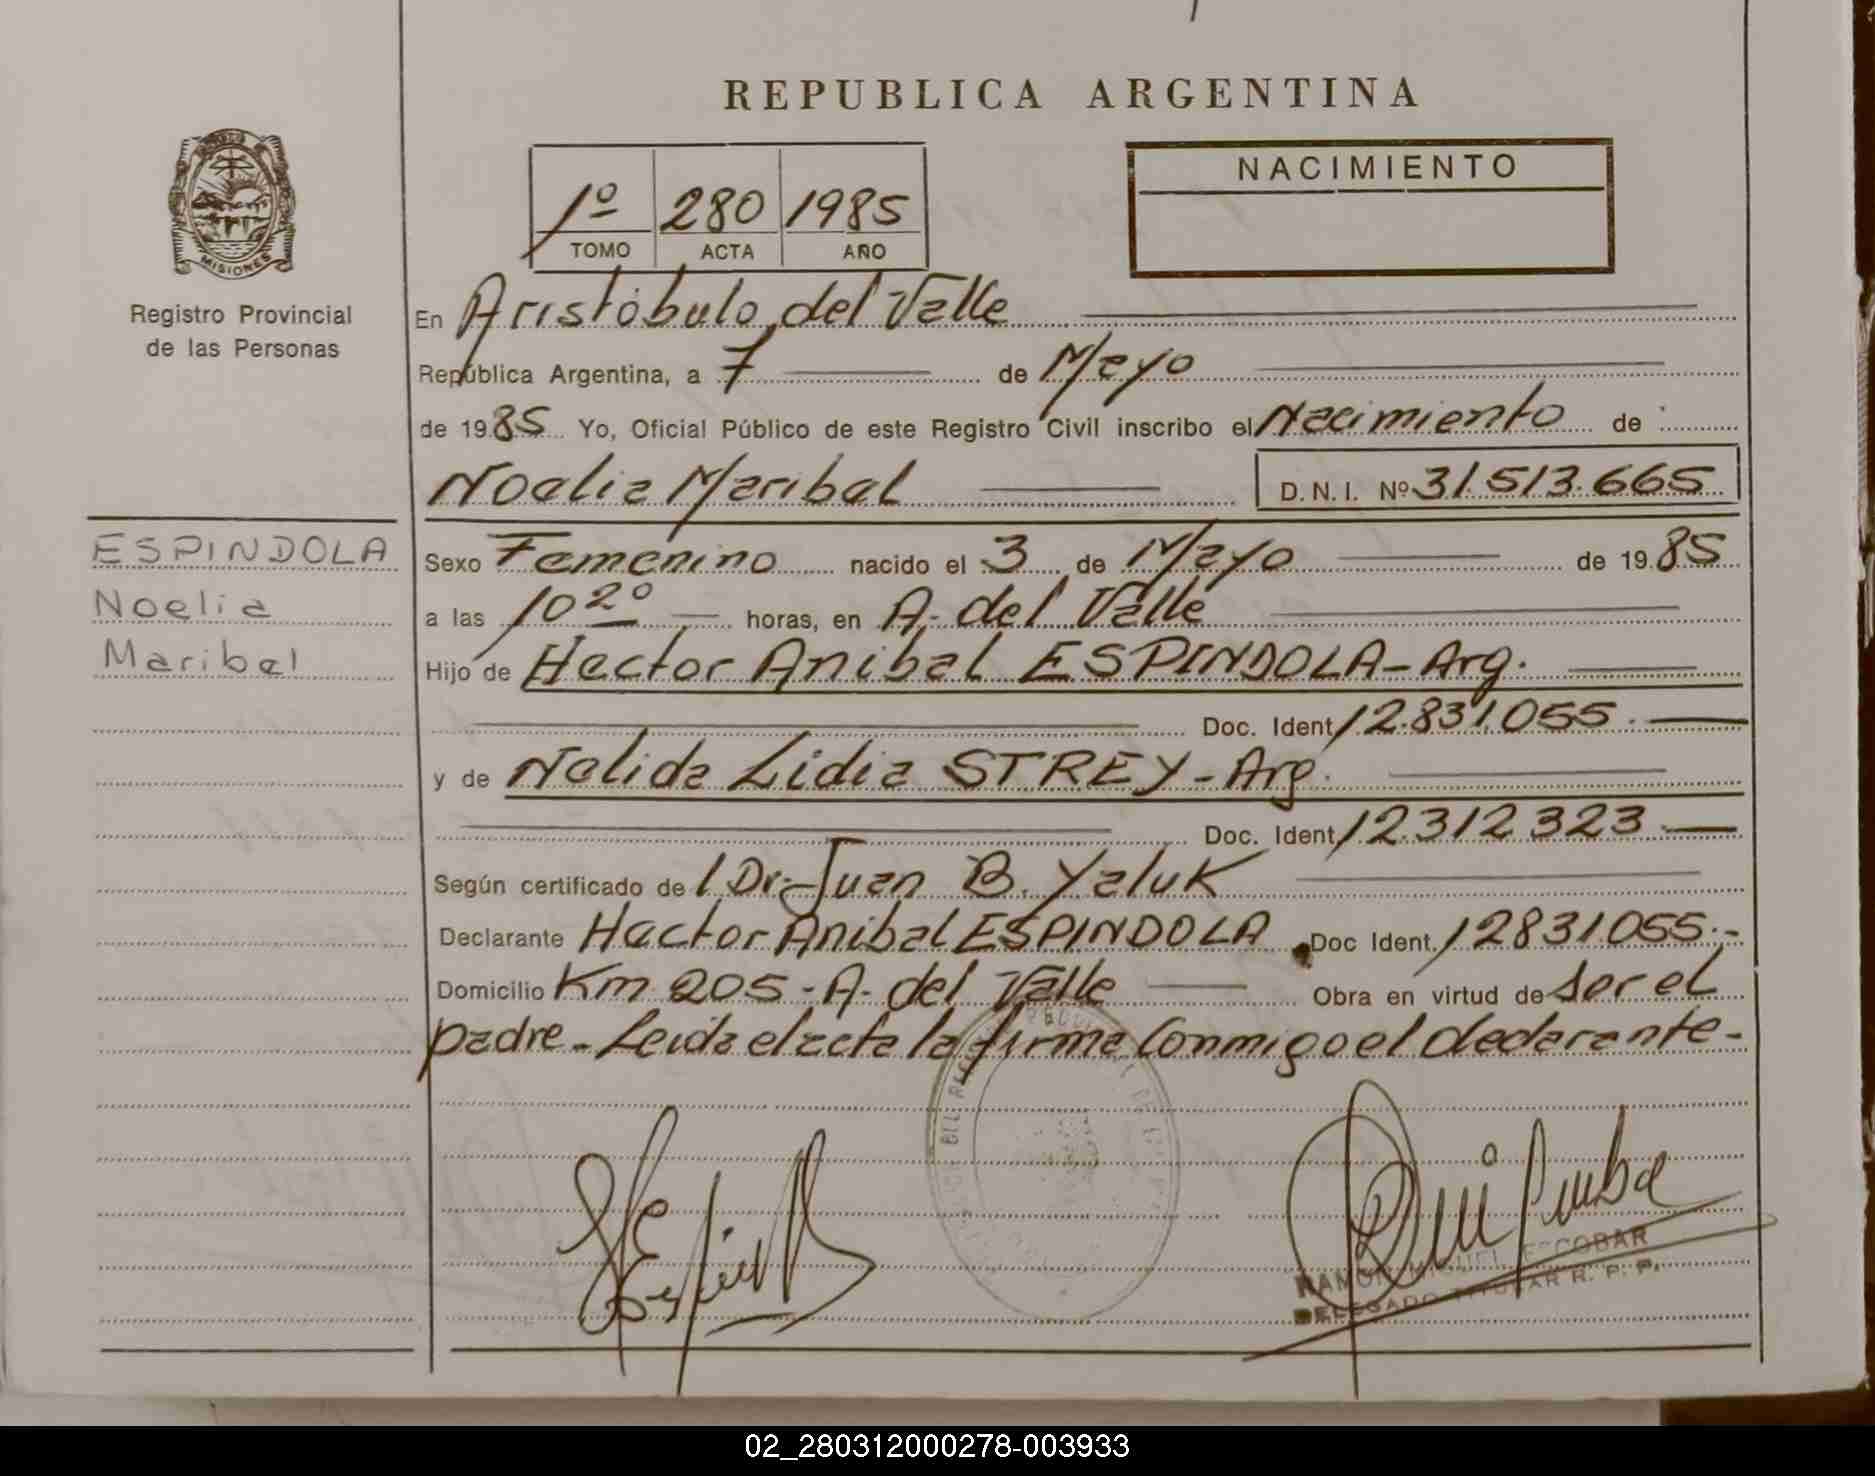 REPUBLICA ARGENTINA
NACIMIENTO
1º 280 1985
TOMO ACTA AÑO
MISIONES
Registro Provincial
de las Personas
En Aristóbulo del Valle
República Argentina, a 7 de Mayo
de 1985 Yo, Oficial Público de este Registro Civil inscribo el Nacimiento de
Noelia Maribel D.N.I. Nº 31.513.665
ESPINDOLA
Noelia
Maribel
Sexo Femenino nacido el 3 de Mayo de 1985
a las 10 20 horas, en A. del Valle
Hijo de Hector Anibal ESPINDOLA - Arg.
Doc. Ident. 12.831.055.
y de Nelida Lidia STREY - Arg.
Doc. Ident. 12.312.323
Según certificado de l Dr. Juan B. Yaluk
Declarante Hector Anibal ESPINDOLA Doc Ident. 12831.055.-
Domicilio Km 205 - A. del Valle Obra en virtud de ser el
padre - Leida el acta la firma conmigo el declarante -
RAMON MIGUEL ESCOBAR
DELEGADO TITULAR R. P. P.
02_280312000278-003933